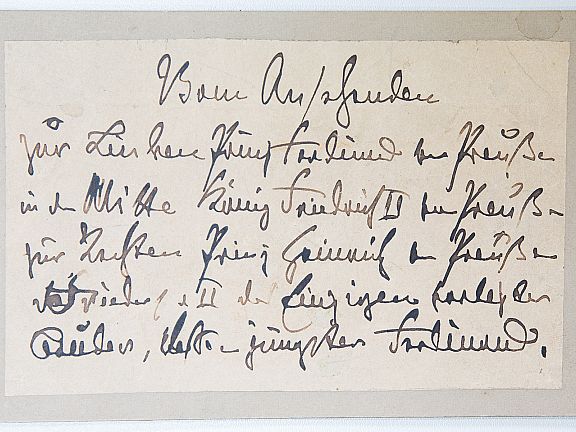 Vom Ansehenden
zur Linken Prinz Ferdinand von Preußen
in der Mitte König Friedrich II von Preußen
zur Rechten Prinz Heinrich von Preußen
Friedrichs II des Einzigen vorletzter
Bruder, dessen jüngster Ferdinand.